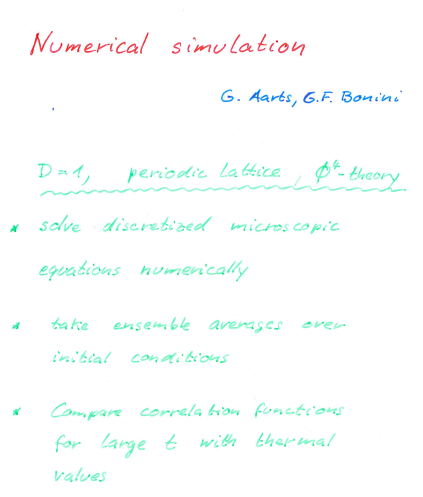 Numerical simulation
G. Aarts, G.F. Bonini
D=1, periodic lattice, ϕ⁴-theory
* solve discretized microscopic
equations numerically
* take ensemble averages over
initial conditions
* Compare correlation functions
for large t with thermal
values